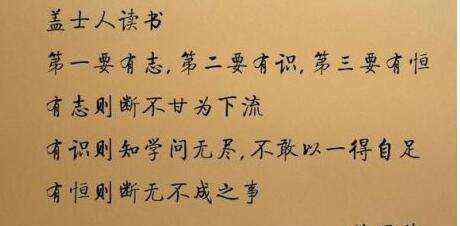 盖士人读书
第一要有志,第二要有识,第三要有恒
有志则断不甘为下流
有识则知学问无尽,不敢以一得自足
有恒则断无不成之事